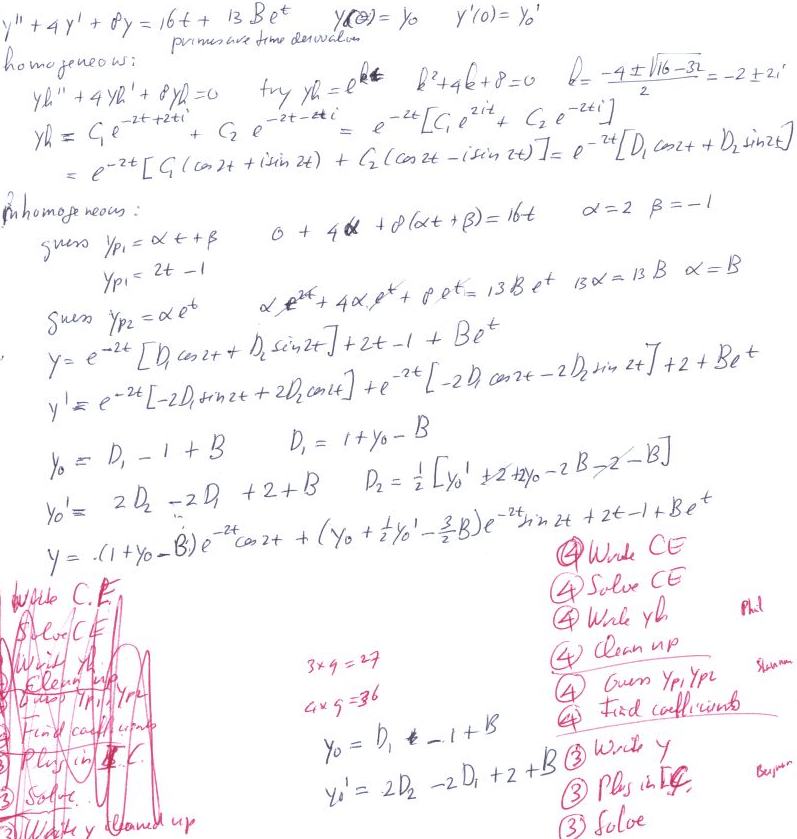 y'' + 4y' + 8y = 16t + 13Be^t   y(0) = y₀   y'(0) = y₀'
primes are time derivatives
homogeneous:
yh'' + 4yh' + 8yh = 0   try yh = e^kt   k² + 4k + 8 = 0   k = (-4 ± √(16-32))/2 = -2 ± 2i
yh = C₁e^(-2t+2ti) + C₂e^(-2t-2ti) = e^(-2t)[C₁e^(2it) + C₂e^(-2ti)]
= e^(-2t)[C₁(cos2t + i sin 2t) + C₂(cos 2t - i sin 2t)] = e^(-2t)[D₁ cos2t + D₂ sin2t]
inhomogeneous:
guess yp₁ = αt + β   0 + 4α + 8(αt + β) = 16t   α = 2   β = -1
yp₁ = 2t - 1
guess yp₂ = αe^t   αe^t + 4αe^t + 8e^t = 13Be^t   13α = 13B   α = B
y = e^(-2t)[D₁ cos2t + D₂ sin2t] + 2t - 1 + Be^t
y' = e^(-2t)[-2D₁ sin2t + 2D₂ cos2t] + e^(-2t)[-2D₁ cos2t - 2D₂ sin 2t] + 2 + Be^t
y₀ = D₁ - 1 + B   D₁ = 1 + y₀ - B
y₀' = 2D₂ - 2D₁ + 2 + B   D₂ = ½[y₀' + 2 + 2y₀ - 2B - 2 - B]
y = (1 + y₀ - B)e^(-2t) cos2t + (y₀ + ½y₀' - 3/2 B)e^(-2t) sin 2t + 2t - 1 + Be^t
Write C.E.
Solve CE
Write yh
Clean up
Guess yp₁, yp₂
Find coefficients
3 Plug in I.C.
3 Solve
3 Write y cleaned up
3 x 9 = 27
4 x 9 = 36
y₀ = D₁ - 1 + B
y₀' = 2D₂ - 2D₁ + 2 + B
4 Write CE
4 Solve CE
4 Write yh   Phil
4 Clean up
4 Guess yp₁ yp₂
4 Find coefficients
3 Write y
3 Plug in IC
3 Solve